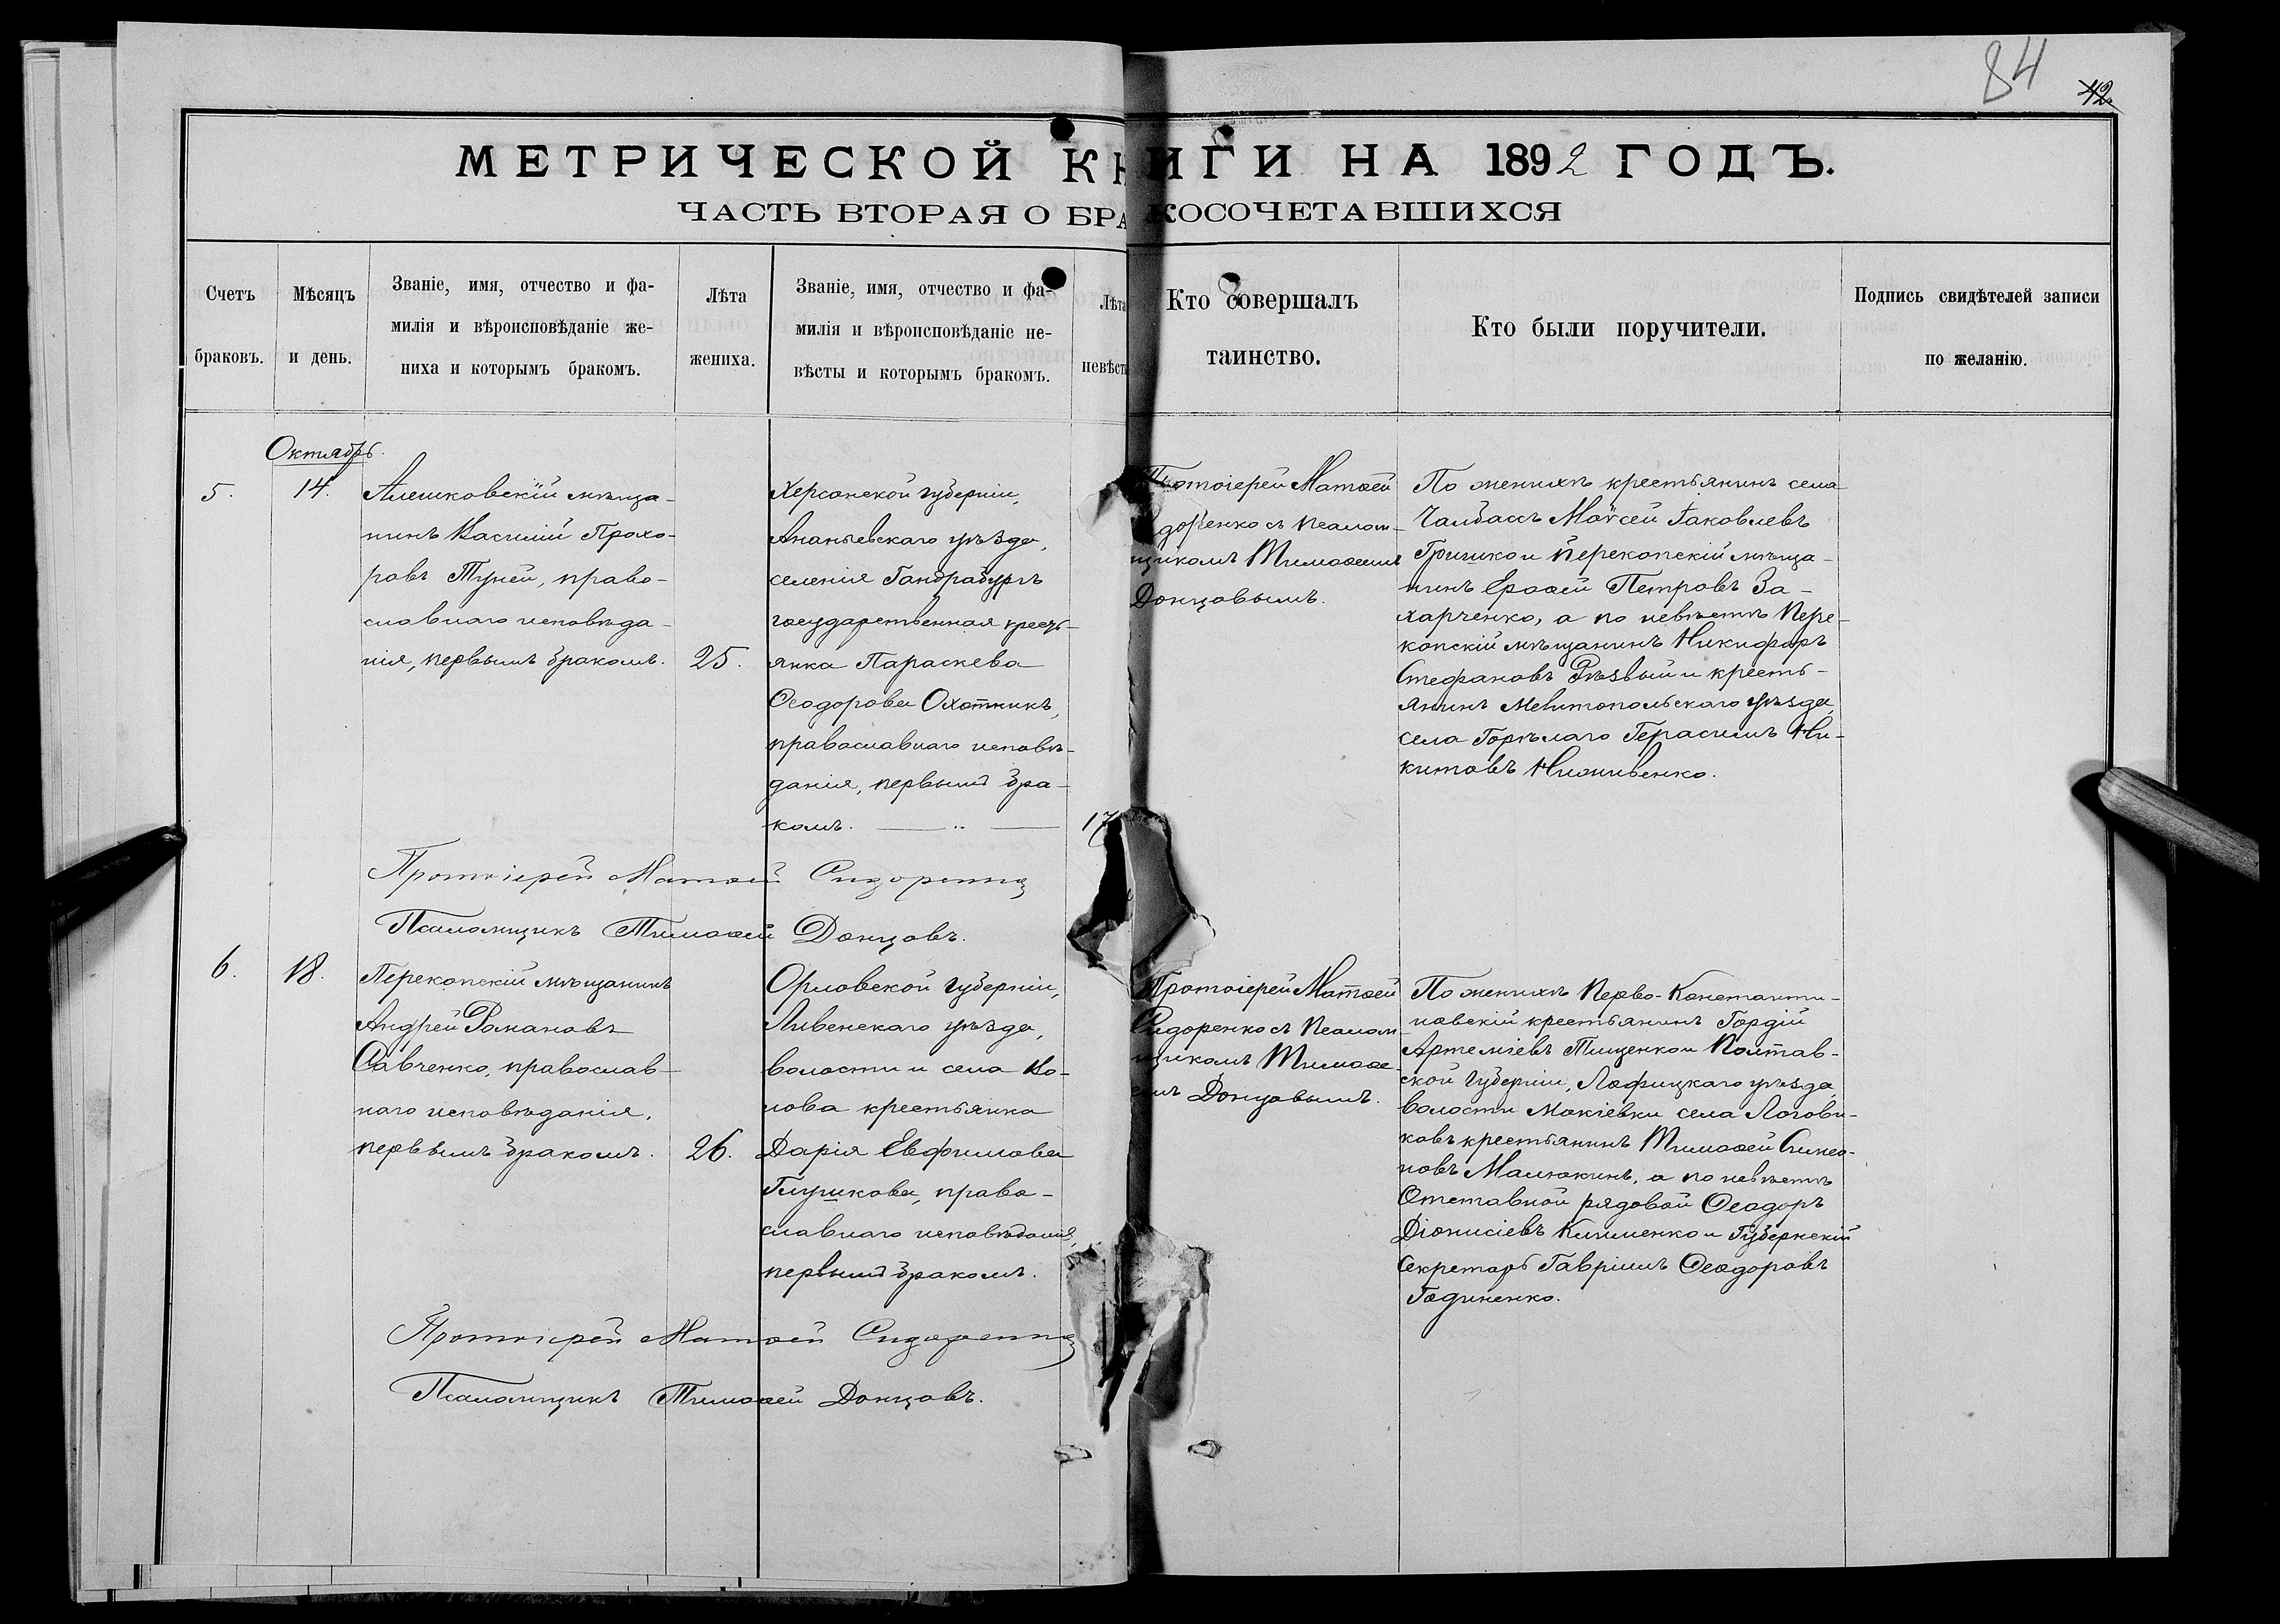 84
42
МЕТРИЧЕСКОЙ КНИГИ НА 1892 ГОДЪ.
ЧАСТЬ ВТОРАЯ О БРАКОСОЧЕТАВШИХСЯ
Счетъ
браковъ.
Мѣсяцъ
и день.
Званіе, имя, отчество и фа-
милія и вѣроисповѣданіе же-
ниха и которымъ бракомъ.
Лѣта
жениха.
Званіе, имя, отчество и фа-
милія и вѣроисповѣданіе не-
вѣсты и которымъ бракомъ.
Лѣта
невѣст
Кто совершалъ
таинство.
Кто были поручители.
Подпись свидѣтелей записи
по желанію.
Октябрь.
5.
14.
Алешковскій мѣща-
нинъ Василій Прохо-
ровъ Тупей, право-
славнаго исповѣда-
нія, первымъ бракомъ.
25.
Херсонской губерніи,
Ананьевскаго уѣзда,
селенія Гандрабуръ
государственная кресть-
янка Параскева
Ѳеодорова Охотникъ,
православнаго исповѣ-
данія, первымъ бра-
комъ.
17
Протоіерей Матѳей
доренко съ псалом-
щикомъ Тимоѳеемъ
Донцовымъ.
По женихѣ крестьянинъ села
Чалбассъ Моѵсей Іаковлевъ
Гришко и Перекопскій мѣща-
нинъ Ероѳей Петровъ За-
харченко, а по невѣстѣ Пере-
копскій мѣщанинъ Никифоръ
Стефановъ Рѣзвый и кресть-
янинъ Мелитопольскаго уѣзда,
села Горѣлаго Герасимъ Ни-
китовъ
Протоіерей Матѳей Сидоренко
Псаломщикъ Тимоѳей Донцовъ.
6.
18.
Перекопскій мѣщанинъ
Андрей Романовъ
Савченко, православ-
наго исповѣданія,
первымъ бракомъ.
26.
Орловской губерніи,
Ливенскаго уѣзда,
волости и села Ко-
лова крестьянка
Дарія Евфимова
Глушкова, право-
славнаго исповѣданія,
первымъ бракомъ.
Протоіерей Матѳей
Сидоренко съ псалом
щикомъ Тимоѳе-
емъ Донцовымъ.
По женихѣ Перво-Константи-
новскій крестьянинъ Гордій
Артеміевъ Тищенко и Полтав-
ской губерніи, уѣзда,
волости села Логови-
ковъ крестьянинъ Тимоѳей Симео-
новъ Малюкинъ, а по невѣстѣ
Отставной рядовой Ѳеодоръ
Діонисіевъ Клименко и Губернскій
Секретарь Гавріилъ Ѳеодоровъ
Годиненко.
Протоіерей Матѳей Сидоренко
Псаломщикъ Тимоѳей Донцовъ.